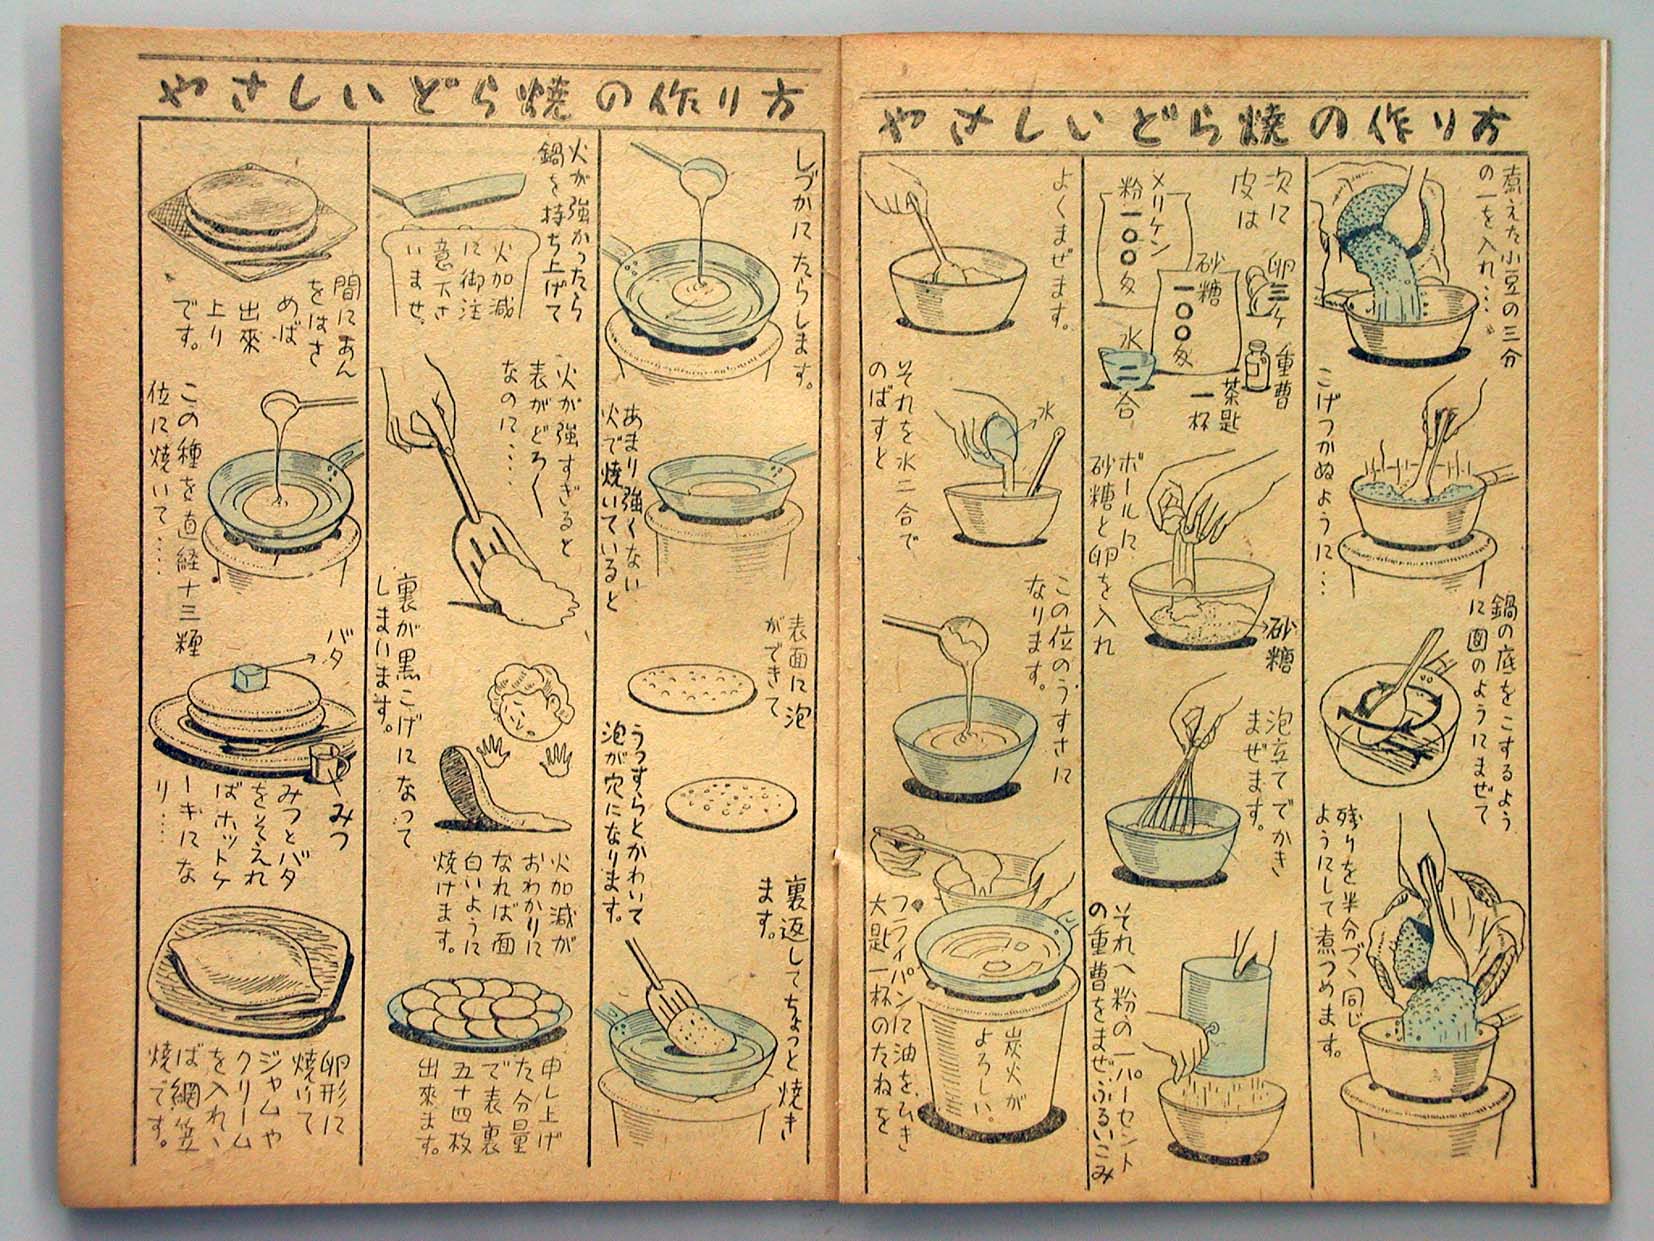 やさしいどら焼の作り方
煮えた小豆の三分
の一を入れ…
こげつかぬように…
鍋の底をこするよう
に圖のようにまぜて
残りを半分づゝ同じ
ようにして煮つめます。
次に
皮は
メリケン
粉一〇〇匁
砂糖
一〇〇匁
卵三ケ
水
二合
重曹
茶匙
一杯
ボールに
砂糖と卵を入れ
砂糖
泡立てでかき
まぜます。
それへ粉の一パーセント
の重曹をまぜふるいこみ
よくまぜます。
それを水二合で
のばすと
水
この位のうすさに
なります。
フライパンに油をひき
大匙一杯のたねを
炭火が
よろしい。
やさしいどら焼の作り方
しづかにたらします。
あまり強くない
火で焼いていると
表面に泡
ができて
うっすらとかわいて
泡が穴になります。
裏返してちょっと焼き
ます。
火が強かったら
鍋を持ち上げて
火加減
に御注
意下さ
いませ。
火が強すぎると
表がどろ〱
なのに……
裏が黒こげになって
しまいます。
火加減が
おわかりに
なれば面
白いように
焼けます。
申し上げ
た分量
で表裏
五十四枚
出來ます。
間にあん
をはさ
めば
出來
上り
です。
この種を直経十三糎
位に焼いて……
バタ
みつ
みつとバタ
をそえれ
ばホットケ
ーキにな
り……
卵形に
焼いて
ジャムや
クリーム
を入れゝ
ば網笠
焼です。